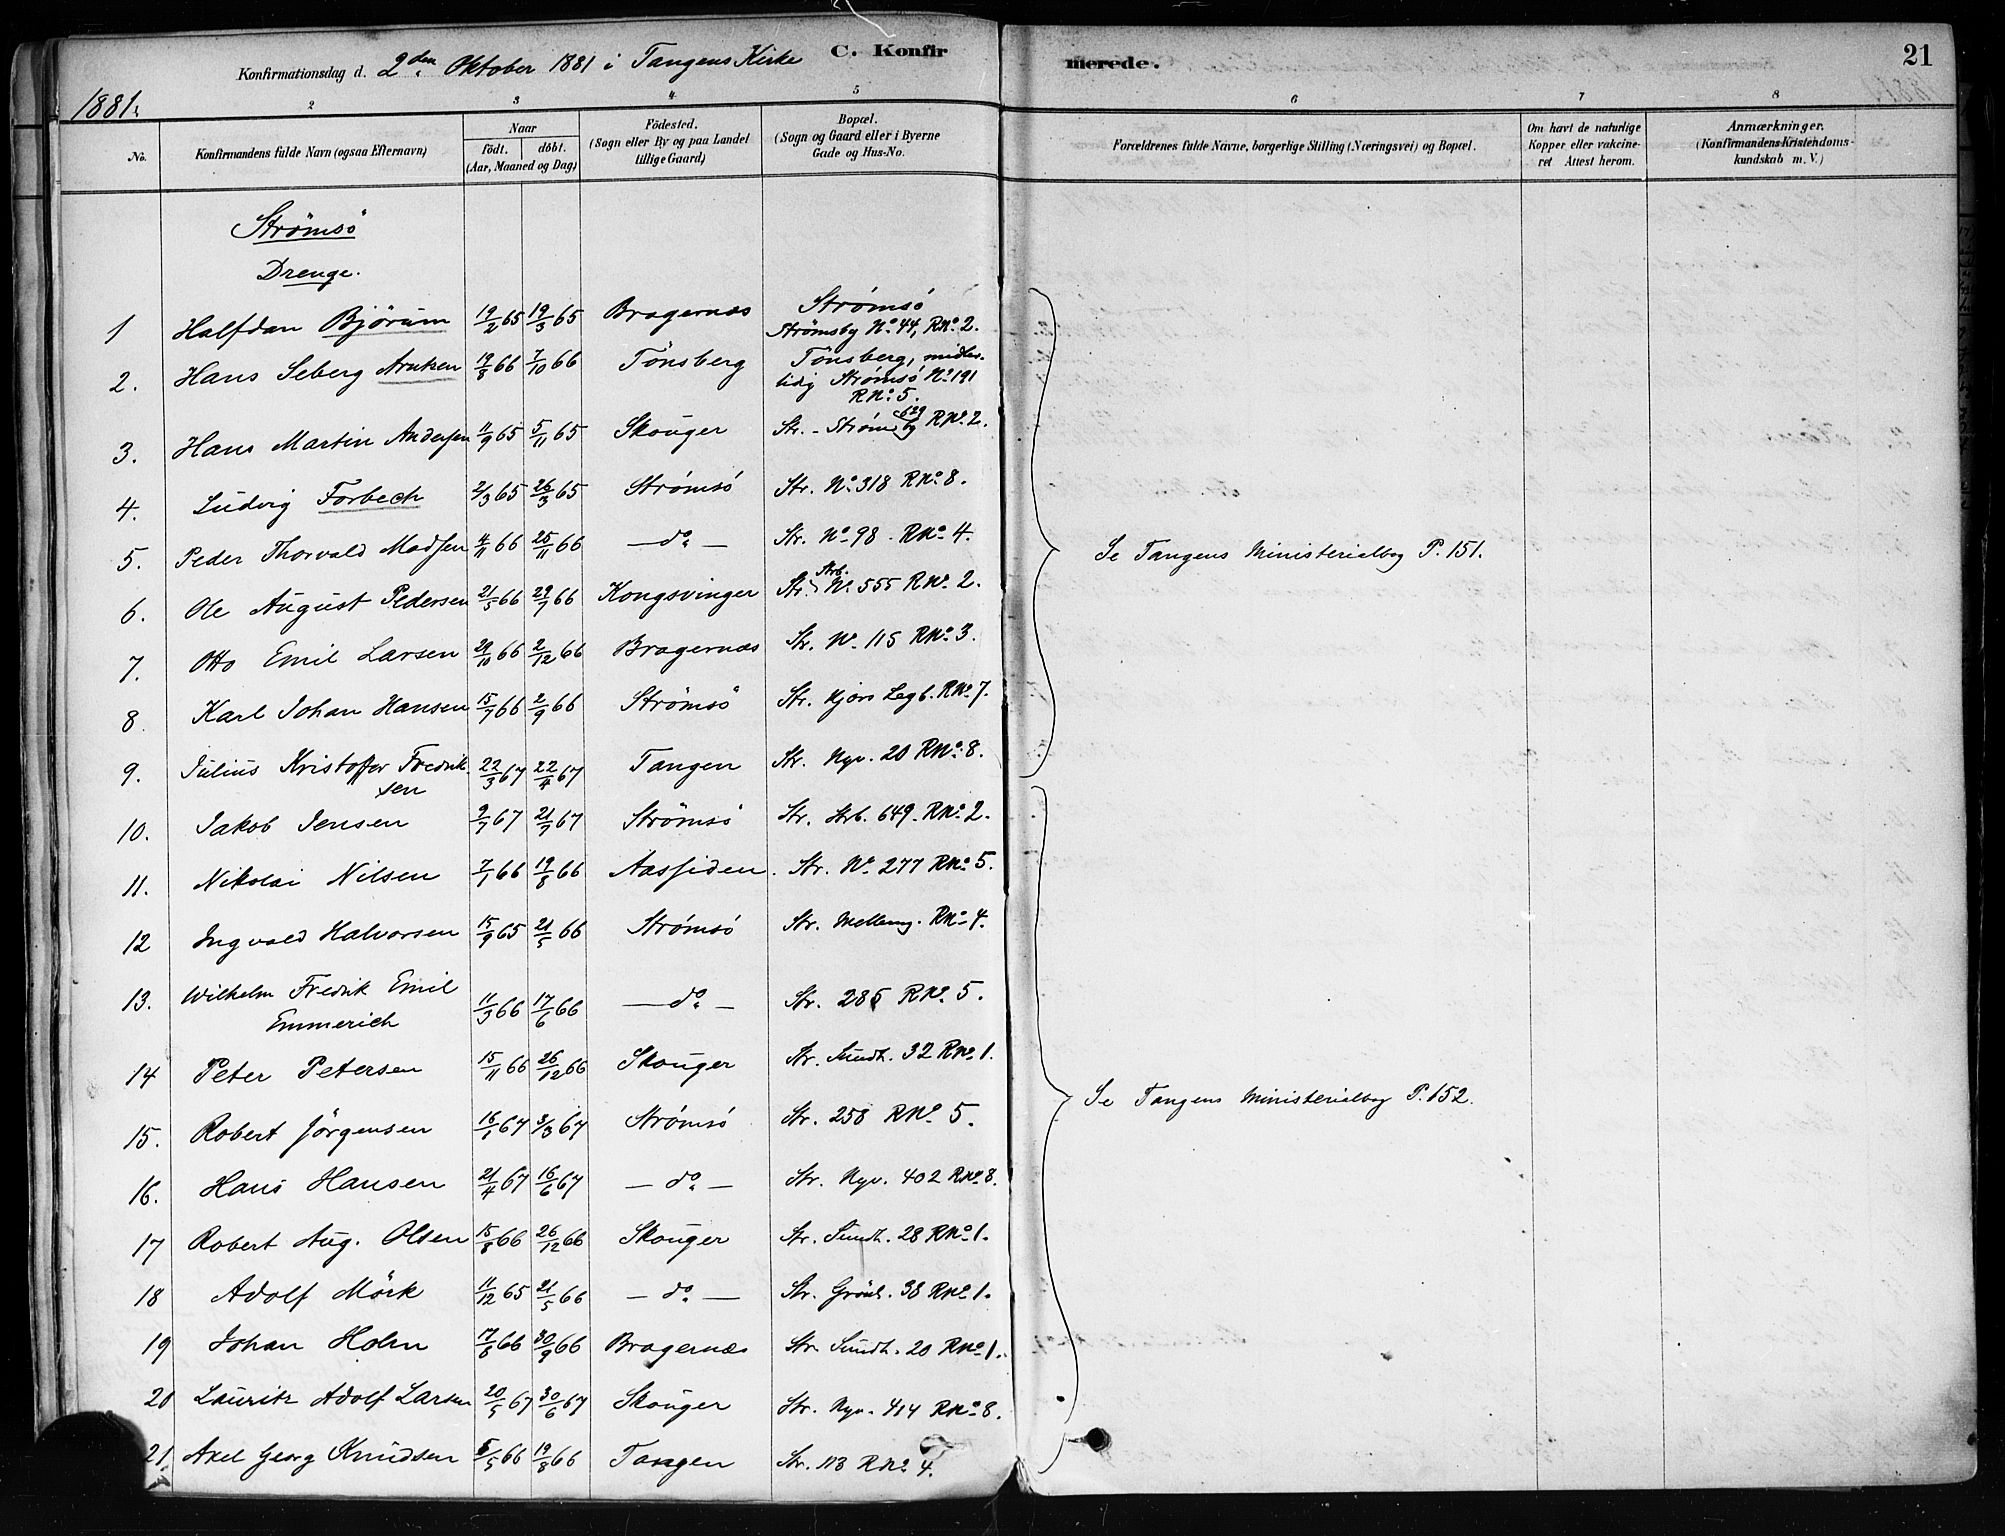 C. Konfirmerede. 21
Konfirmationsdag d. 2den Oktober 1881 i Tangens Kirke
1881.
2 3 4 5 6 7 8
No.
Konfirmandens fulde Navn (ogsaa Efternavn)
Naar
födt. döbt.
(Aar, Maaned og Dag)
Födested.
(Sogn eller By og paa Landet
tillige Gaard)
Bopæl.
(Sogn og Gaard eller i Byerne
Gade og Hus-No.
Forældrenes fulde Navne, borgerlige Stilling (Næringsvei) og Bopæl.
Om havt de naturlige
Kopper eller vakcine-
ret Attest herom.
Anmærkninger.
(Konfirmandens Kristendoms-
kundskab m. V.)
Strömsö
Drenge.
1 Halfdan Björum 19/2 65 19/3 65 Bragernæs Strømsö
Strömsby No. 44, RNo. 2.
2. Hans Seberg 19/8 66 7/10 66 Tönsberg Tönsberg, midler-
tidig Strømsö No. 191
RNo. 5.
3. Hans Martin Andersen 11/9 65 5/11 65 Skouger Str. - Strömsby 629 RNo. 2.
4. Ludvig Forbech 2/3 65 26/3 65 Strömsö Str. No. 318 RNo. 8.
5. Peder Thorvald Madsen 4/11 66 25/11 66 — do. — Str. No. 98. RNo. 4.
6. Ole August Pedersen 21/5 66 29/7 66 Kongsvinger Str. Strb. No. 555 RNo. 2.
7. Otto Emil Larsen 29/10 66 2/12 66 Bragernæs Str. No. 115 RNo. 3.
8. Karl Johan Hansen 15/7 66 2/9 66 Strömsö Str. Legb. RNo. 7.
9. Julius Kristoffer Fredrik-
sen 22/3 67 22/4 67 Tangen Str. Nyv. 20 RNo. 8.
10. Jakob Jensen 9/7 67 21/7 67 Strömsö Str. Strb. 649. RNo. 2.
11. Nikolai Nilsen 7/1 66 19/8 66 Aassiden. Str. No. 277 RNo. 5.
12 Ingvald Halvorsen 15/9 65 21/5 66 Strömsö Str. Mellemg. RNo. 4.
13. Wilhelm Fredrik Emil
Emmerich 11/3 66 17/6 66 — do. — Str. 285 RNo. 5.
14 Peter Petersen 15/11 66 26/12 66 Skouger Str. Sundh. 32 RNo. 1.
15. Robert Jörgensen 16/1 67 3/3 67 Strömsö Str. 258 RNo. 5.
16. Hans Hansen 21/4 67 16/6 67 — do. — Str. Nyv. 402 RNo. 8.
17 Robert Aug. Olsen 15/8 66 26/12 66 Skouger Str. Sundh. 28 RNo. 1.
18 Adolf Mörk 11/12 65 21/5 66 — do. — Str. Grönl. 38 RNo. 1.
19 Johan Holm 17/8 66 30/9 66 Bragernæs Str. Sundh. 20 RNo. 1.
20 Lauritz Adolf Larsen 20/5 67 30/6 67 Skouger Str. Nyv. 414 RNo. 8.
21. Axel Georg Knudsen 5/5 66 19/8 66 Tangen Str. 113 RNo. 4.
Se Tangens Ministerialbog P. 151.
Se Tangens Ministerialbog P. 152.